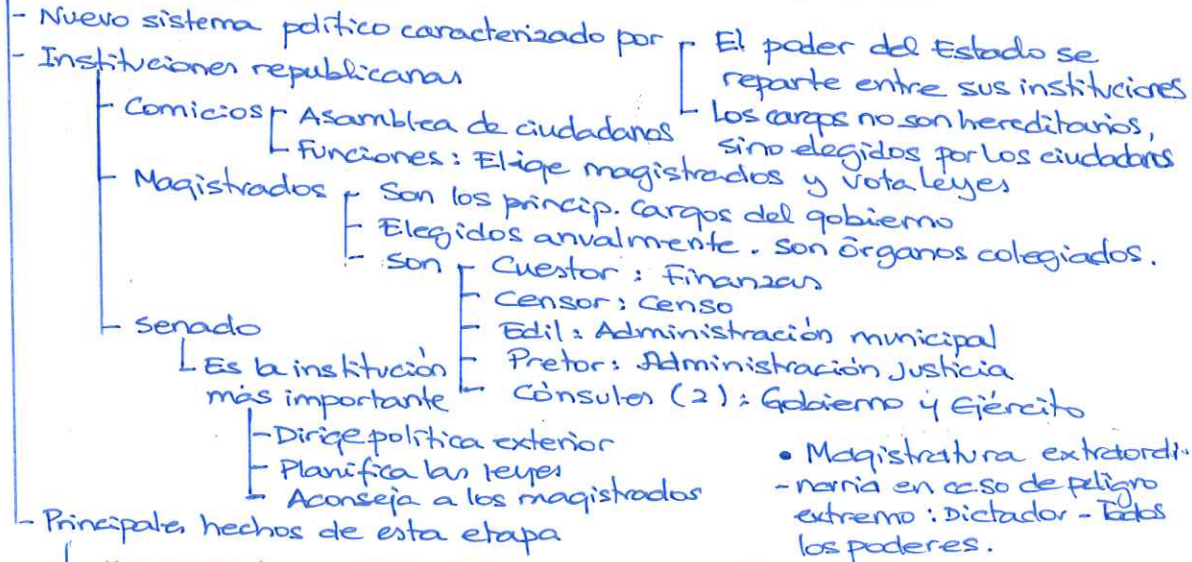 - Nuevo sistema político caracterizado por
- El poder del Estado se
reparte entre sus instituciones
- Los cargos no son hereditarios,
sino elegidos por los ciudadanos
- Instituciones republicanas
- Comicios
- Asamblea de ciudadanos
- Funciones: Elige magistrados y vota leyes
- Magistrados
- Son los princip. cargos del gobierno
- Elegidos anualmente. Son órganos colegiados.
- Son
- Cuestor: Finanzas
- Censor: Censo
- Edil: Administración municipal
- Pretor: Administración Justicia
- Cónsules (2): Gobierno y Ejército
- Senado
Es la institución
más importante
- Dirige política exterior
- Planifica las leyes
- Aconseja a los magistrados
• Magistratura extraordi-
-narria en caso de peligro
extremo: Dictador - Todos
los poderes.
- Principales hechos de esta etapa